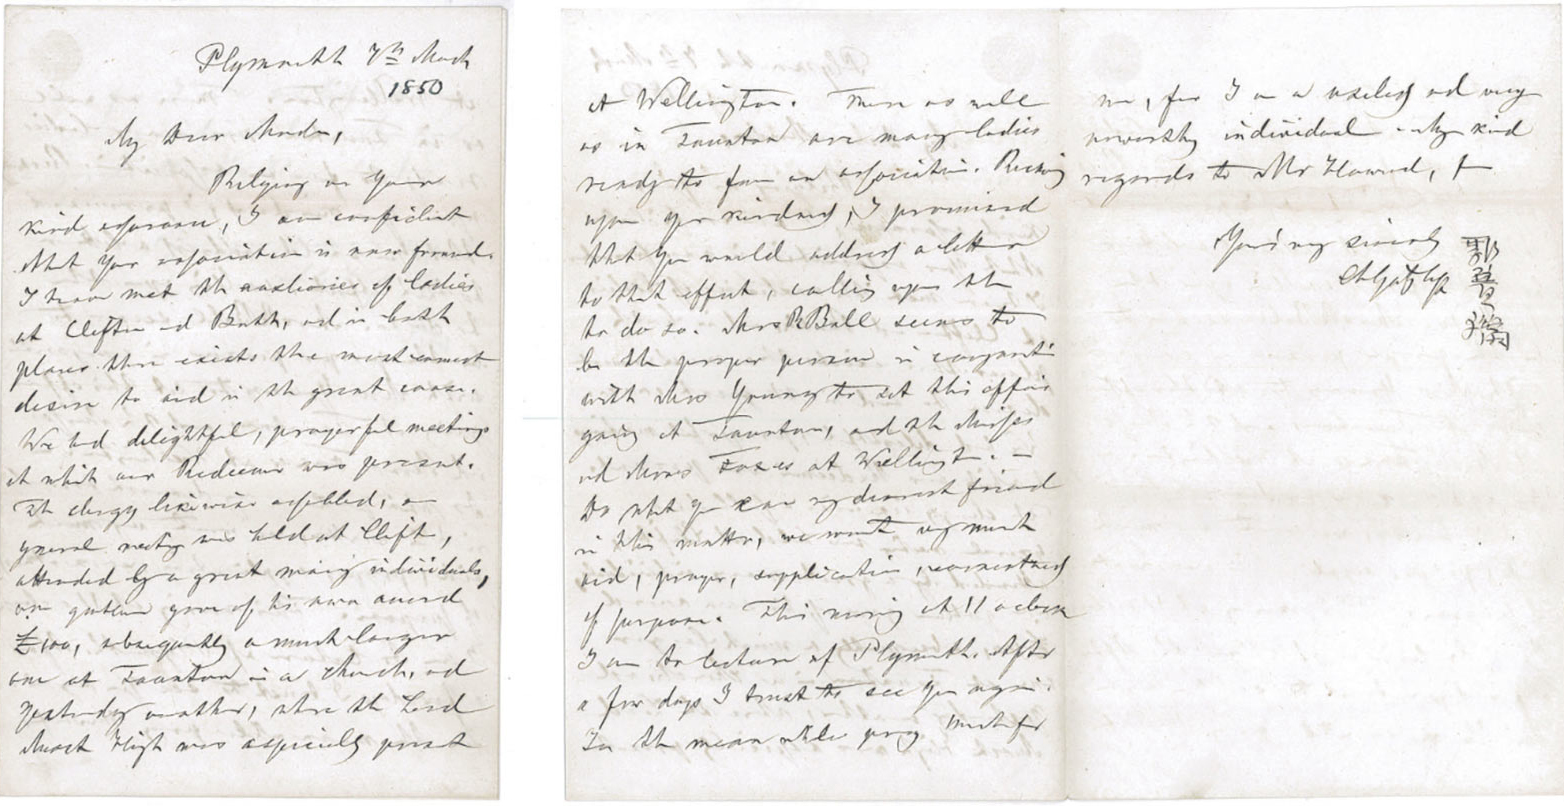 Plymouth 7th March
1850
My Dear Madam,
Relying on your
kind assurance, I am confident
that your association is now formed.
I have met the auxiliaries of Ladies
at Clifton and Bath, and in both
places there exists the most earnest
desire to aid in the great cause.
We had delightful, prayerful meetings
at which our Redeemer was present.
The clergy likewise assembled, a
general meeting was held at Clifton,
attended by a great many individuals,
one gave of his own accord
£100, subsequently a much larger
one at Taunton in a church, and
yesterday another, where the Lord
Most High was especially present
at Wellington. There as well
as in Taunton are many ladies
ready to form an association. Relying
upon your kindness, I promised
that you would address a letter
to that effect, calling upon them
to do so. Mrs Ball seems to
be the proper person in conjunction
with Mrs Young to set this affair
going at Taunton, and the Misses
and Mrs Foxes at Wellington. —
Do what you can my dearest friend
in this matter, we want very much
aid, prayer, supplication, earnestness
of purpose. This morning at 11 o clock
I am to lecture at Plymouth. After
a few days I trust to see you again.
In the mean while pray much for
me, for I am a useless and very
unworthy individual - My kind
regards to Mr Howard,
Yours very sincerely
Ch Gutzlaff
郭
實
獵